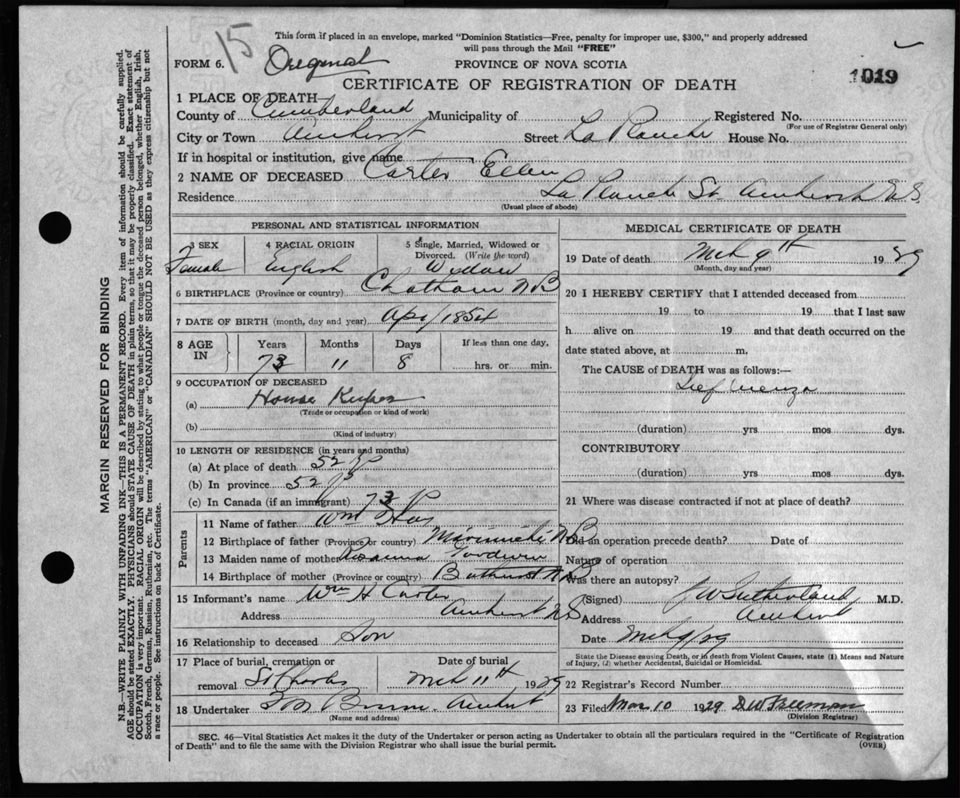 This form if placed in an envelope, marked "Dominion Statistics—Free, penalty for improper use, $300," and properly addressed
will pass through the Mail "FREE"
15
FORM 6. Original PROVINCE OF NOVA SCOTIA
CERTIFICATE OF REGISTRATION OF DEATH
1019
1 PLACE OF DEATH—
County of Cumberland Municipality of Registered No.
(For use of Registrar General only)
City or Town Amherst Street La Planche House No.
If in hospital or institution, give name
2 NAME OF DECEASED Carter Ellen
Residence La Planch St. Amherst N.S.
(Usual place of abode)
PERSONAL AND STATISTICAL INFORMATION
3 SEX 4 RACIAL ORIGIN 5 Single, Married, Widowed or
Divorced. (Write the word)
Female English Widow
6 BIRTHPLACE (Province or country) Chatham N.B
7 DATE OF BIRTH (month, day and year) Apr/1854
8 AGE IN Years Months Days If less than one day,
73 11 8 hrs. or min.
9 OCCUPATION OF DECEASED
(a) House Keeper
(Trade or occupation or kind of work)
(b)
(Kind of industry)
10 LENGTH OF RESIDENCE (in years and months)
(a) At place of death 52
(b) In province 52
(c) In Canada (if an immigrant) 73
Parents
11 Name of father Wm
12 Birthplace of father (Province or country) Mirimichi N.B
13 Maiden name of mother
14 Birthplace of mother (Province or country) Bathurst N.B
15 Informant's name Wm H Carter
Address Amherst N.S
16 Relationship to deceased Son
17 Place of burial, cremation or Date of burial
removal St Charles Mch 11th 1929
18 Undertaker Amherst
(Name and address)
MEDICAL CERTIFICATE OF DEATH
19 Date of death Mch 9th 1929
(Month, day and year)
20 I HEREBY CERTIFY that I attended deceased from
19 to 19 that I last saw
h alive on 19 and that death occurred on
date stated above, at m.
The CAUSE of DEATH was as follows:—
Influenza
(duration) yrs mos dys.
CONTRIBUTORY
(duration) yrs mos dys.
21 Where was disease contracted if not at place of death?
Did an operation precede death? Date of
Nature of operation
Was there an autopsy?
(Signed) J W Sutherland M.D.
Address Amherst
Date Mch 9/29
State the Disease causing Death, or in death from Violent Causes, state (1) Means and Nature
of Injury, (2) whether Accidental, Suicidal or Homicidal.
22 Registrar's Record Number
23 Filed Mar 10 1929 D.W. Freeman
(Division Registrar)
SEC. 46—Vital Statistics Act makes it the duty of the Undertaker or person acting as Undertaker to obtain all the particulars required in the "Certificate of Registration
of Death" and to file the same with the Division Registrar who shall issue the burial permit.
(OVER)
MARGIN RESERVED FOR BINDING
N.B.—WRITE PLAINLY WITH UNFADING INK—THIS IS A PERMANENT RECORD. Every item of information should be carefully supplied.
AGE should be stated EXACTLY. PHYSICIANS should STATE CAUSE OF DEATH in plain terms, so that it may be properly classified. Exact statement of
OCCUPATION is very important. RACIAL ORIGIN will be described by stating to what people or tongue the deceased person belonged, whether English, Irish,
Scotch, French, German, Russian, Ruthenian, etc. The terms "AMERICAN" or "CANADIAN" SHOULD NOT BE USED as they express citizenship but not
a race or people. See instructions on back of Certificate.